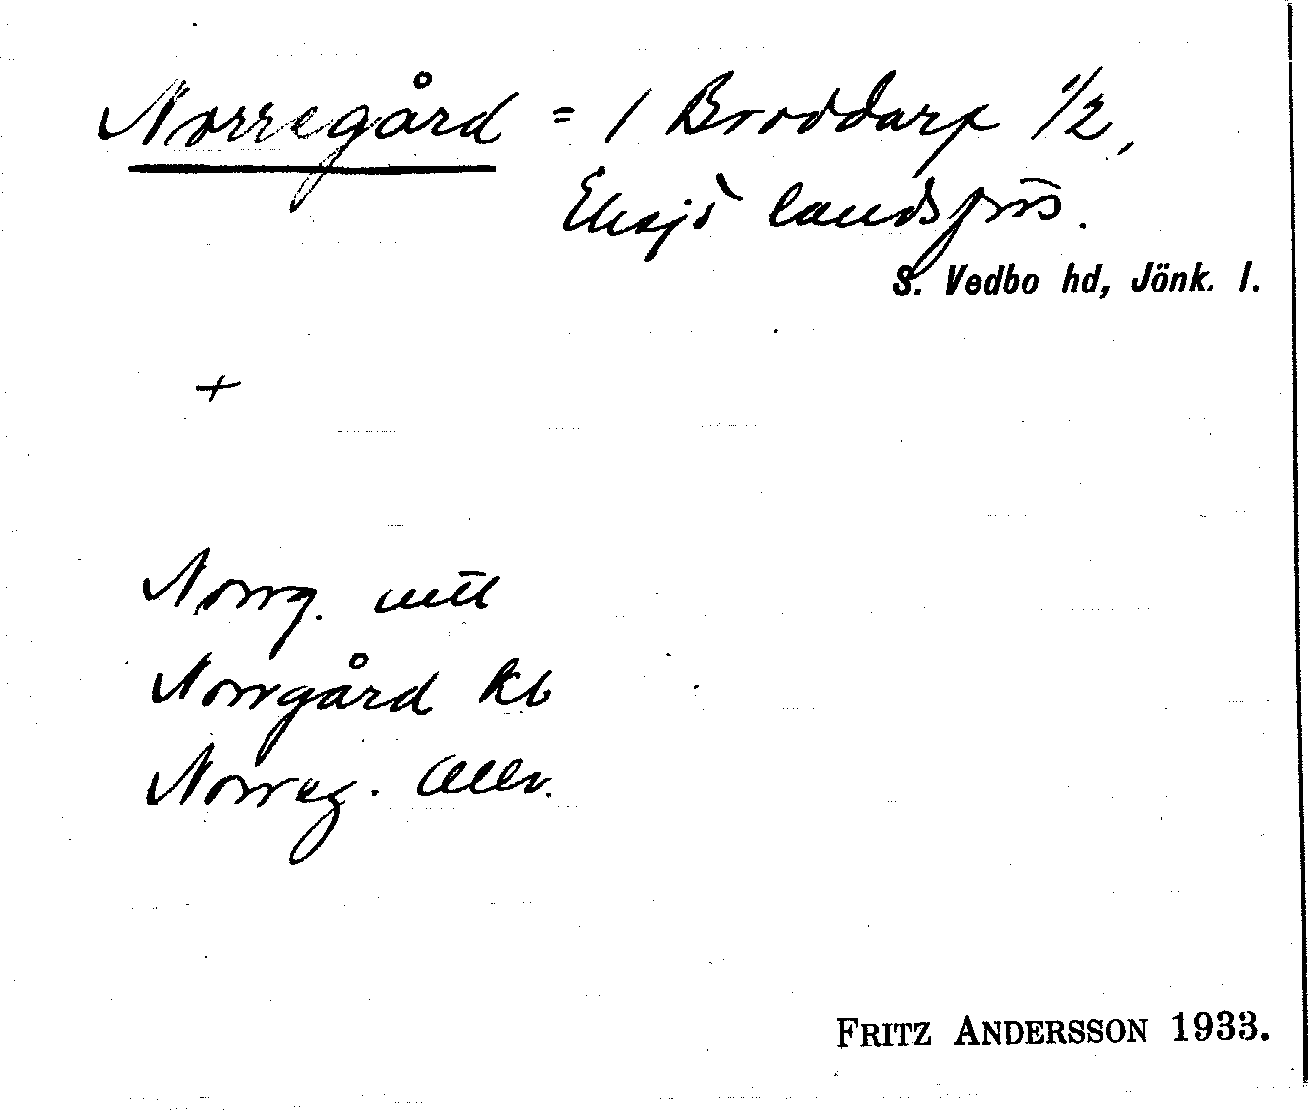 Norregård = 1 Broddarp 1/2,
Eksjö landsförs.
S. Vedbo hd, Jönk. l.
+
Norrg.
Norrgård kb
Norreg.
FRITZ ANDERSSON 1933.